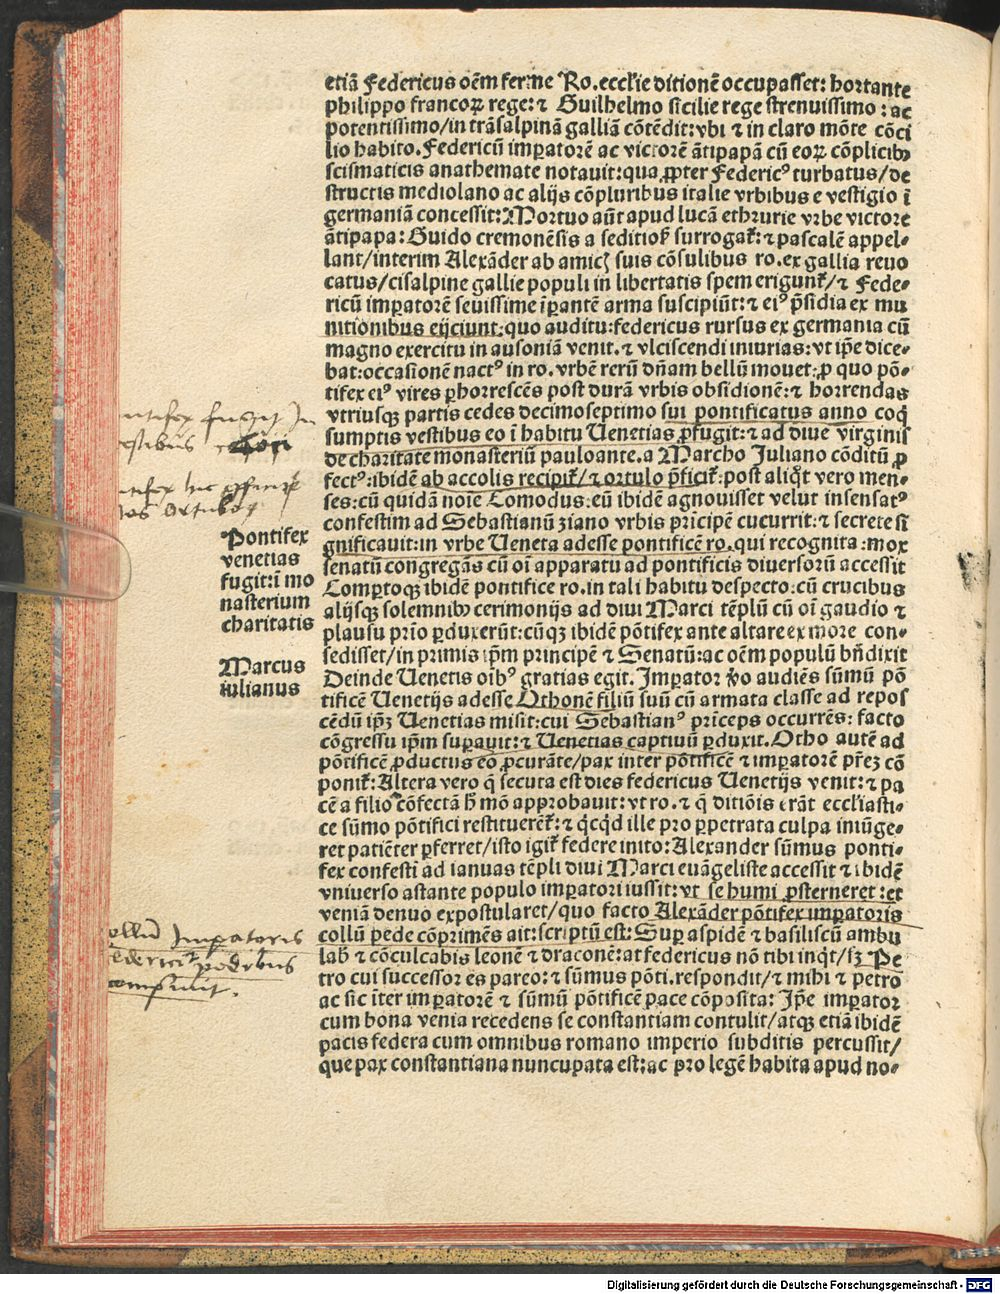 etiã Federicus oẽm ferme Ro. eccl'ie ditionẽ occupasset: hortante
philippo francoꝝ rege: ⁊ Guilhelmo sicilie rege strenuissimo: ac
potentissimo/in trãsalpinã galliã cõtẽdit: vbi ⁊ in claro mõte cõci
lio habito. Federicũ imꝑatorẽ ac victorẽ ãtipapã cũ eoꝝ cõplicibꝰ
scismaticis anathemate notauit: qua ꝓpter Federicꝰ turbatus/de
structis mediolano ac alijs cõpluribus italie vrbibus e vestigio ĩ
germaniã concessit: Mortuo aũt apud lucã ethrurie vrbe victore
ãtipapa: Guido cremonẽsis a seditiosꝭ surrogat̃: ⁊ pascalẽ appel-
lant/interim Alexãder ab amicꝭ suis cõsulibus ro. ex gallia reuo
catus/cisalpine gallie populi in libertatis spem erigunt̃/⁊ Fede-
ricũ imꝑatorẽ seuissime ĩꝑantẽ arma suscipiũt: ⁊ eiꝰ p̃sidia ex mu
nitionibus eijciunt: quo auditu: federicus rursus ex germania cũ
magno exercitu in ausoniã venit. ⁊ vlciscendi iniurias: vt ip̃e dice-
bat: occasionẽ nactꝰ in ro. vrbẽ rerũ dñam bellũ mouet: ꝓ quo põ-
tifex eiꝰ vires ꝑhorrescẽs post durã vrbis obsidionẽ: ⁊ horrendas
vtriusqꝫ partis cedes decimoseptimo sui pontificatus anno coqͥ
sumptis vestibus eo ĩ habitu Uenetias ꝓfugit: ⁊ ad diue virginis
de charitate monasteriũ pauloante. a Marcho Juliano cõditũ ꝓ
fectꝰ: ibidẽ ab accolis recipit̃/⁊ ortulo p̃ficit̃: post aliqͥt vero men-
ses: cũ quidã noĩe Comodus: eũ ibidẽ agnouisset velut insensatꝰ
confestim ad Sebastianũ ziano vrbis principẽ cucurrit: ⁊ secrete si
gnificauit: in vrbe Ueneta adesse pontificẽ ro. qui recognita: mox
senatũ congregãs cũ oĩ apparatu ad pontificis diuersoriũ accessit
Comꝑtoqꝫ ibidẽ pontifice ro. in tali habitu despecto: cũ crucibus
alijsqꝫ solemnibꝰ cerimonijs ad diui Marci tẽplũ cũ oĩ gaudio ⁊
plausu prĩo ꝑduxerũt: cũqꝫ ibidẽ põtifex ante altare ex more con-
sedisset/in primis ip̃m principẽ ⁊ Senatũ: ac oẽm populũ bñdixit
Deinde Uenetis oĩbꝰ gratias egit. Imꝑator ꝟo audiẽs sũmũ põ
tificẽ Uenetijs adesse Othonẽ filiũ suũ cũ armata classe ad repos
cẽdũ ip̃ꝫ Uenetias misit: cui Sebastianꝰ prĩceps occurrẽs: facto
cõgressu ip̃m suꝑauit: ⁊ Uenetias captiuũ ꝑduxit. Otho autẽ ad
põtificẽ ꝑductus eo ꝓcurãte/pax inter põtificẽ ⁊ imꝑatorẽ p̃reꝫ cõ
ponit̃: Altera vero q̃ secuta est dies federicus Uenetijs venit: ⁊ pa
cẽ a filio cõfectã hͦ mõ approbauit: vt ro. ⁊ q̃ ditiõis erãt eccl'iasti-
ce sũmo põtifici restituerẽt̃: ⁊ qͥcqͥd ille pro ꝑpetrata culpa iniũge-
ret patiẽter ꝑferret/isto igit̃ federe inito: Alexander sũmus ponti-
fex confestĩ ad ianuas tẽpli diui Marci euãgeliste accessit ⁊ ibidẽ
vniuerso astante populo imꝑatori iussit: vt se humi ꝓsterneret: et
veniã denuo expostularet/quo facto Alexãder põtifex imꝑatoris
collũ pede cõprimẽs ait: scriptũ est: Suꝑ aspidẽ ⁊ basiliscũ ambu
labꝭ ⁊ cõculcabis leonẽ ⁊ draconẽ: at federicus nõ tibi inqͥt/sꝫ Pe
tro cui successor es pareo: ⁊ sũmus põti. respondit/⁊ mihi ⁊ petro
ac sic ĩter imꝑatorẽ ⁊ sũmũ põtificẽ pace cõposita: Ip̃e imꝑator
cum bona venia recedens se constantiam contulit/atqꝫ etiã ibidẽ
pacis federa cum omnibus romano imperio subditis percussit/
que pax constantiana nuncupata est: ac pro legẽ habita apud no-
ntifex fugit In
estibus
Pontifex
venetias
fugit: ĩ mo
nasterium
charitatis
Marcus
iulianus
ollũ Imperatoris
ederici pedibus
compressit.
Digitalisierung gefördert durch die Deutsche Forschungsgemeinschaft - DFG